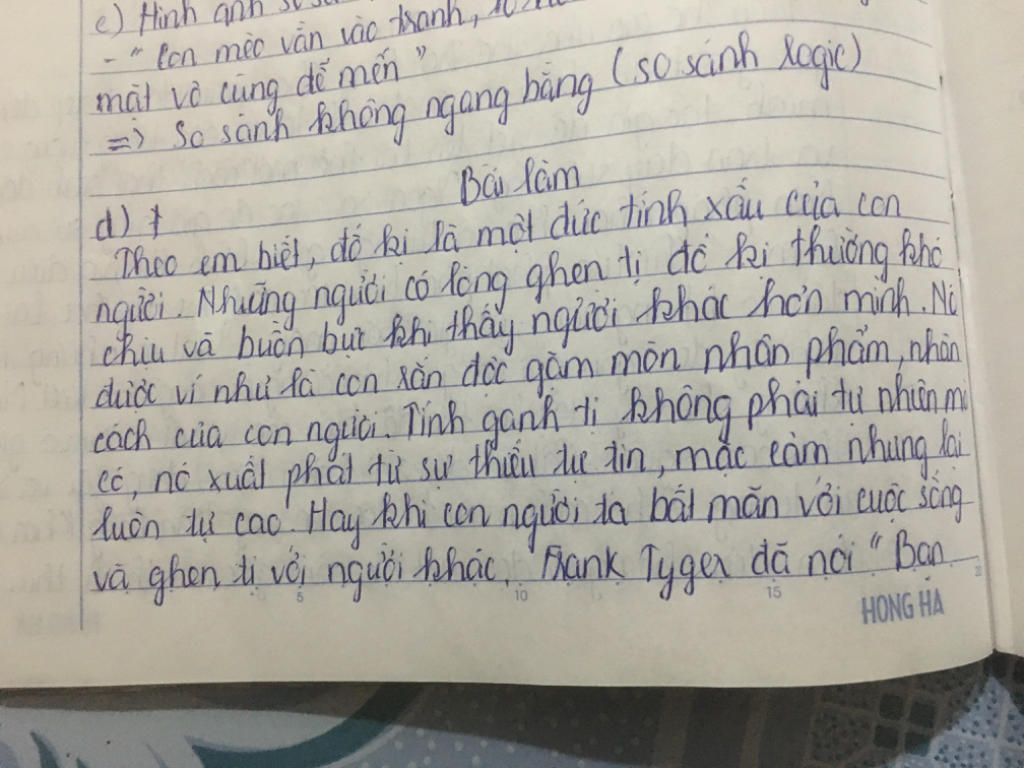 e) Hình ảnh so sá
- " Con mèo vằn vào tranh,
mặt vô cùng dễ mến "
=> So sánh không ngang bằng (so sánh logic)
Bài làm
d) t
Theo em biết, đố kị là một đức tính xấu của con
người. Những người có lòng ghen tị đố kị thường khó
chịu và buồn bực khi thấy người khác hơn mình. Nó
được ví như là con rắn độc gặm mòn nhân phẩm, nhân
cách của con người. Tính ganh tị không phải tự nhiên mà
có, nó xuất phát từ sự thiếu tự tin, mặc cảm nhưng lại
luôn tự cao. Hay khi con người ta bất mãn với cuộc sống
và ghen tị với người khác. Frank Tyger đã nói " Bạn
5 10 15
HONG HA